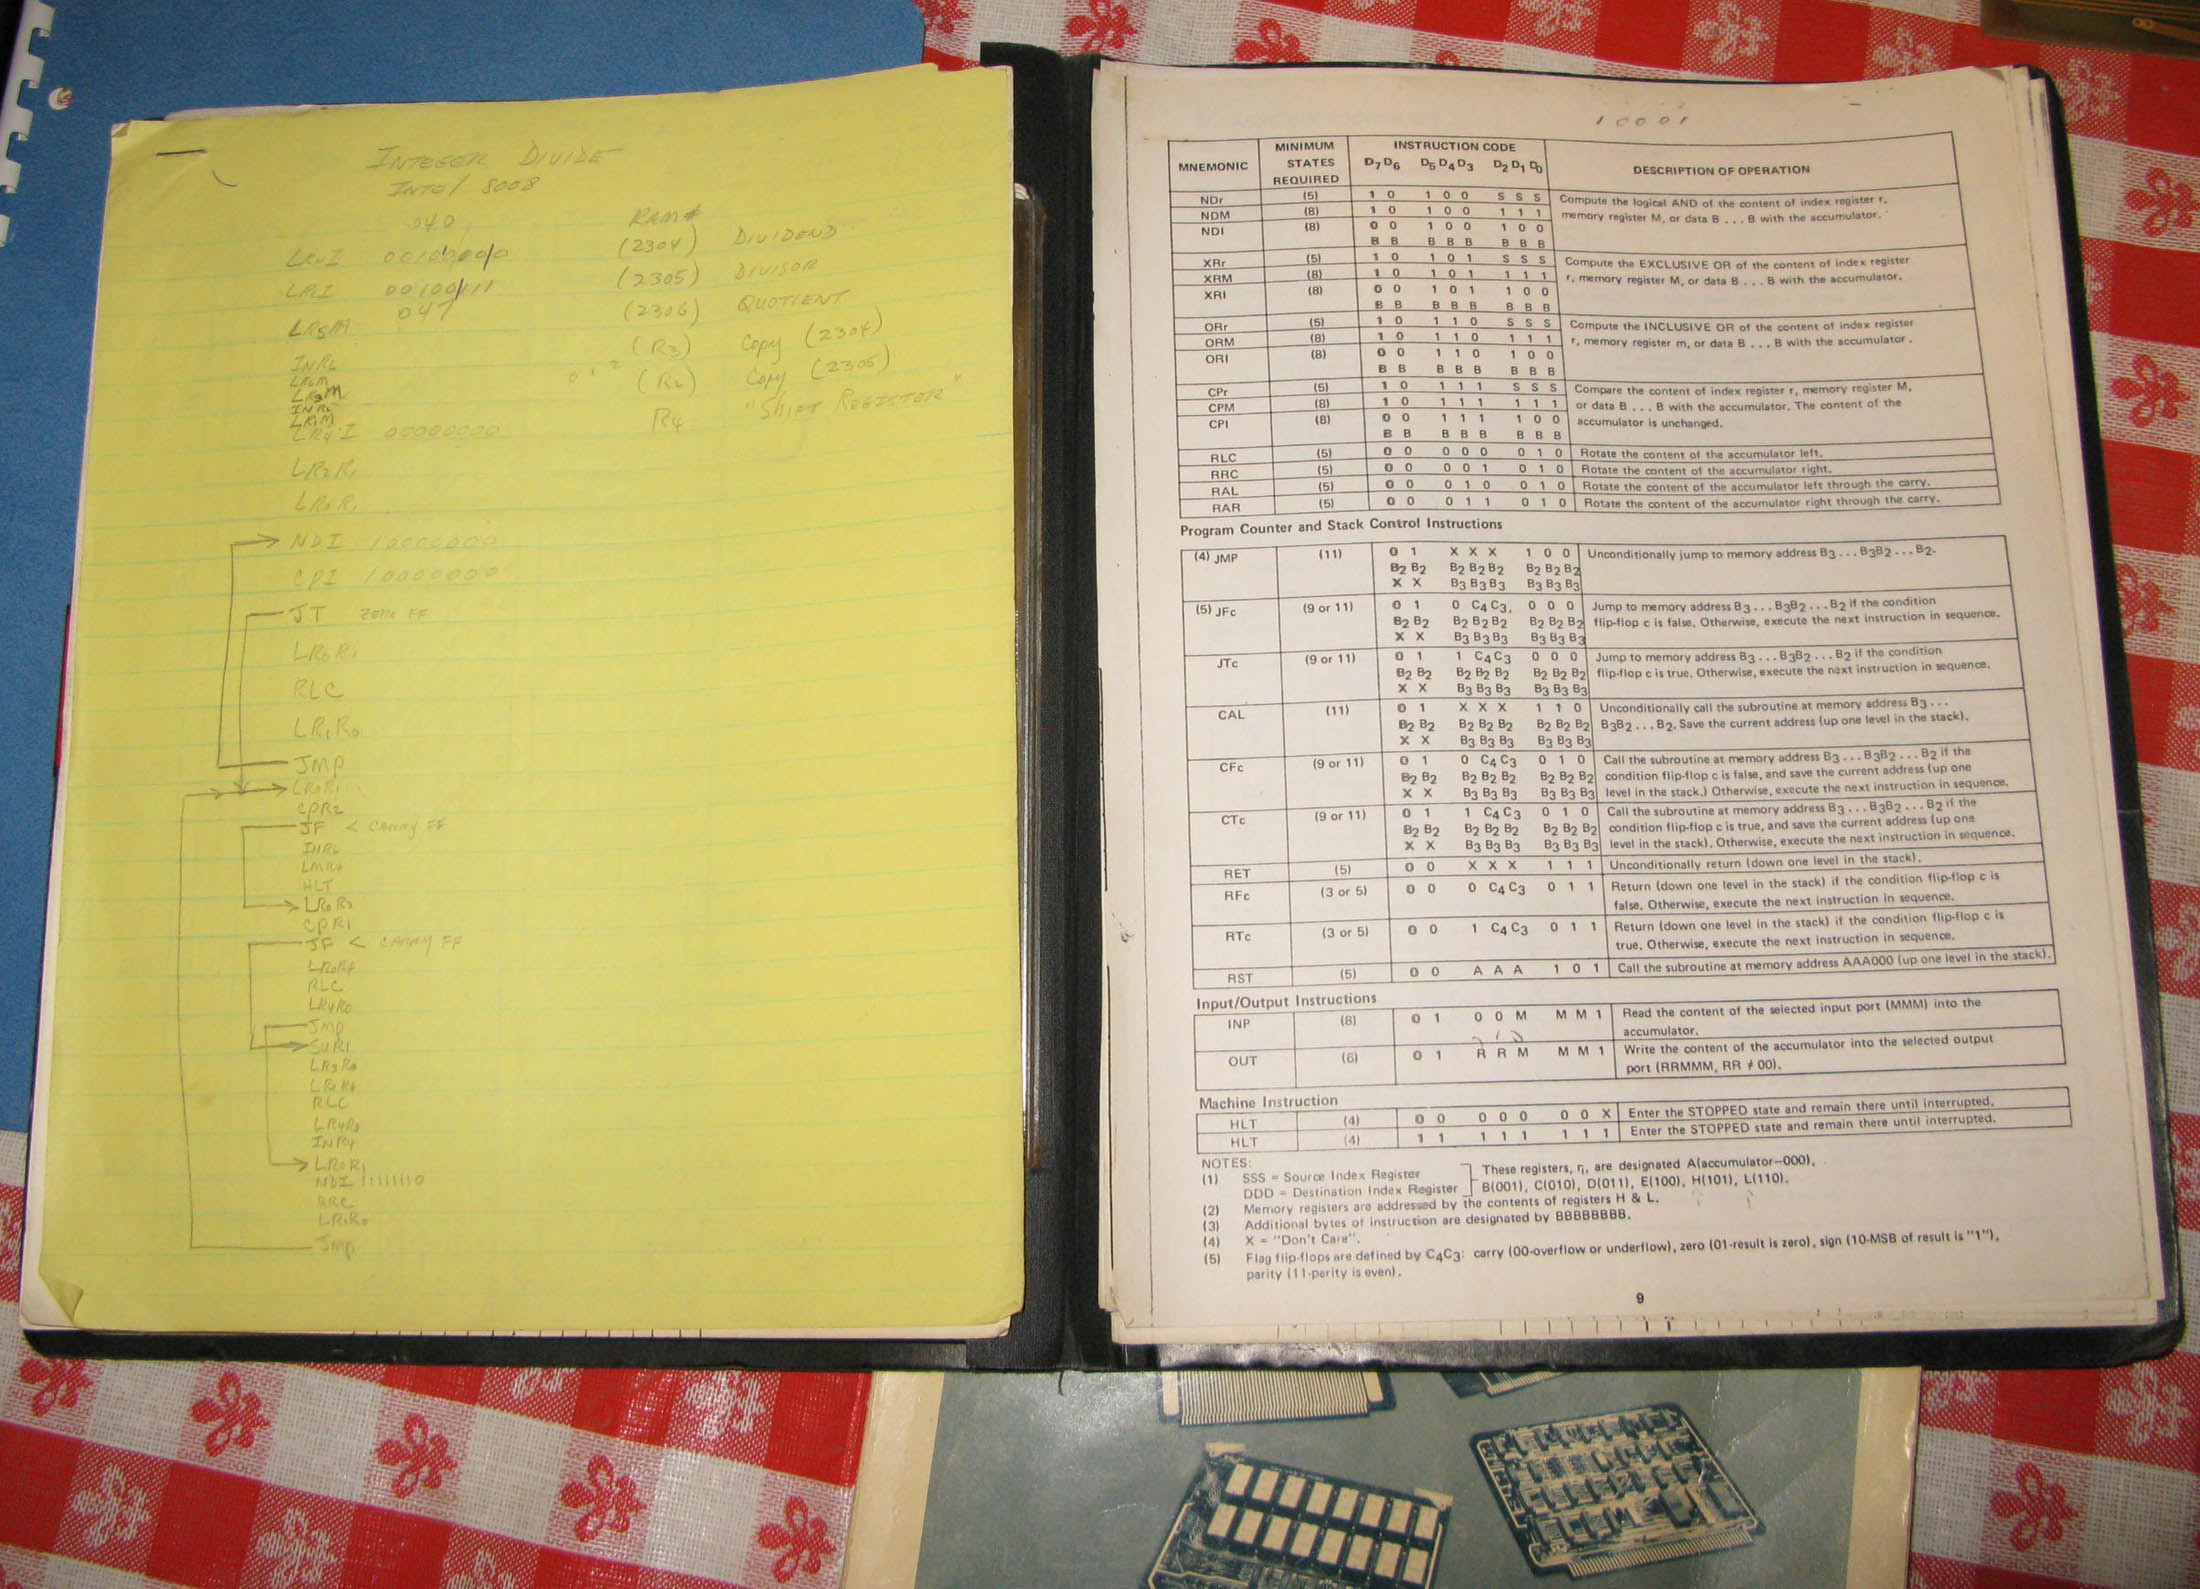 INTEGER DIVIDE
Intel 8008
040
RAM#
(2304) DIVIDEND
(2305) DIVISOR
(2306) QUOTIENT
(R3) Copy (2304)
Copy (2305)
R4 "SHIFT REGISTER"
047
00000000
LR2R1
LR0R1
NDI 10000000
CPI 10000000
JT ZERO FF
LR0R1
RLC
LR1R0
JMP
LR0R1
CPR2
JF < CARRY FF
HLT
LR0R3
CPR1
JF < CARRY FF
LR0R4
RLC
LR4R0
JMP
SUR1
LR3R0
LR0R4
RLC
LR4R0
INR4
LR0R1
NDI 11111110
RRC
LR1R0
JMP
10001
MNEMONIC MINIMUM STATES REQUIRED INSTRUCTION CODE D7 D6 D5 D4 D3 D2 D1 D0 DESCRIPTION OF OPERATION
NDr (5) 1 0 1 0 0 S S S Compute the logical AND of the content of index register r,
NDM (8) 1 0 1 0 0 1 1 1 memory register M, or data B . . . B with the accumulator.
NDI (8) 0 0 1 0 0 1 0 0
B B B B B B B B
XRr (5) 1 0 1 0 1 S S S Compute the EXCLUSIVE OR of the content of index register
XRM (8) 1 0 1 0 1 1 1 1 r, memory register M, or data B . . . B with the accumulator.
XRI (8) 0 0 1 0 1 1 0 0
B B B B B B B B
ORr (5) 1 0 1 1 0 S S S Compute the INCLUSIVE OR of the content of index register
ORM (8) 1 0 1 1 0 1 1 1 r, memory register m, or data B . . . B with the accumulator .
ORI (8) 0 0 1 1 0 1 0 0
B B B B B B B B
CPr (5) 1 0 1 1 1 S S S Compare the content of index register r, memory register M,
CPM (8) 1 0 1 1 1 1 1 1 or data B . . . B with the accumulator. The content of the
CPI (8) 0 0 1 1 1 1 0 0 accumulator is unchanged.
B B B B B B B B
RLC (5) 0 0 0 0 0 0 1 0 Rotate the content of the accumulator left.
RRC (5) 0 0 0 0 1 0 1 0 Rotate the content of the accumulator right.
RAL (5) 0 0 0 1 0 0 1 0 Rotate the content of the accumulator left through the carry.
RAR (5) 0 0 0 1 1 0 1 0 Rotate the content of the accumulator right through the carry.
Program Counter and Stack Control Instructions
(4) JMP (11) 0 1 X X X 1 0 0 Unconditionally jump to memory address B3 . . . B3B2 . . . B2.
B2 B2 B2 B2 B2 B2 B2 B2
X X B3 B3 B3 B3 B3 B3
(5) JFc (9 or 11) 0 1 0 C4 C3 0 0 0 Jump to memory address B3 . . . B3B2 . . . B2 if the condition
B2 B2 B2 B2 B2 B2 B2 B2 flip-flop c is false. Otherwise, execute the next instruction in sequence.
X X B3 B3 B3 B3 B3 B3
JTc (9 or 11) 0 1 1 C4 C3 0 0 0 Jump to memory address B3 . . . B3B2 . . . B2 if the condition
B2 B2 B2 B2 B2 B2 B2 B2 flip-flop c is true. Otherwise, execute the next instruction in sequence.
X X B3 B3 B3 B3 B3 B3
CAL (11) 0 1 X X X 1 1 0 Unconditionally call the subroutine at memory address B3 . . .
B2 B2 B2 B2 B2 B2 B2 B2 B3B2 . . . B2. Save the current address (up one level in the stack).
X X B3 B3 B3 B3 B3 B3
CFc (9 or 11) 0 1 0 C4 C3 0 1 0 Call the subroutine at memory address B3 . . . B3B2 . . . B2 if the
B2 B2 B2 B2 B2 B2 B2 B2 condition flip-flop c is false, and save the current address (up one
X X B3 B3 B3 B3 B3 B3 level in the stack.) Otherwise, execute the next instruction in sequence.
CTc (9 or 11) 0 1 1 C4 C3 0 1 0 Call the subroutine at memory address B3 . . . B3B2 . . . B2 if the
B2 B2 B2 B2 B2 B2 B2 B2 condition flip-flop c is true, and save the current address (up one
X X B3 B3 B3 B3 B3 B3 level in the stack). Otherwise, execute the next instruction in sequence.
RET (5) 0 0 X X X 1 1 1 Unconditionally return (down one level in the stack).
RFc (3 or 5) 0 0 0 C4 C3 0 1 1 Return (down one level in the stack) if the condition flip-flop c is
false. Otherwise, execute the next instruction in sequence.
RTc (3 or 5) 0 0 1 C4 C3 0 1 1 Return (down one level in the stack) if the condition flip-flop c is
true. Otherwise, execute the next instruction in sequence.
RST (5) 0 0 A A A 1 0 1 Call the subroutine at memory address AAA000 (up one level in the stack).
Input/Output Instructions
INP (8) 0 1 0 0 M M M 1 Read the content of the selected input port (MMM) into the
accumulator.
OUT (6) 0 1 R R M M M 1 Write the content of the accumulator into the selected output
port (RRMMM, RR ≠ 00).
Machine Instruction
HLT (4) 0 0 0 0 0 0 0 X Enter the STOPPED state and remain there until interrupted.
HLT (4) 1 1 1 1 1 1 1 1 Enter the STOPPED state and remain there until interrupted.
NOTES:
(1) SSS = Source Index Register These registers, ri, are designated A(accumulator—000),
DDD = Destination Index Register B(001), C(010), D(011), E(100), H(101), L(110).
(2) Memory registers are addressed by the contents of registers H & L.
(3) Additional bytes of instruction are designated by BBBBBBBB.
(4) X = "Don't Care".
(5) Flag flip-flops are defined by C4C3: carry (00-overflow or underflow), zero (01-result is zero), sign (10-MSB of result is "1"),
parity (11-parity is even).
9